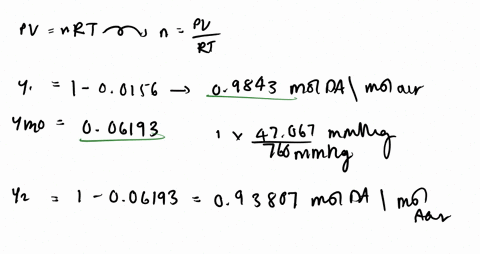 PV = nRT → n = PV/RT
y1 = 1 - 0.0156 → 0.9843 mol DA / mol air
ymo = 0.06193 1 x 47.067 mmHg / 760 mmHg
y2 = 1 - 0.06193 = 0.93807 mol DA / mol Aar